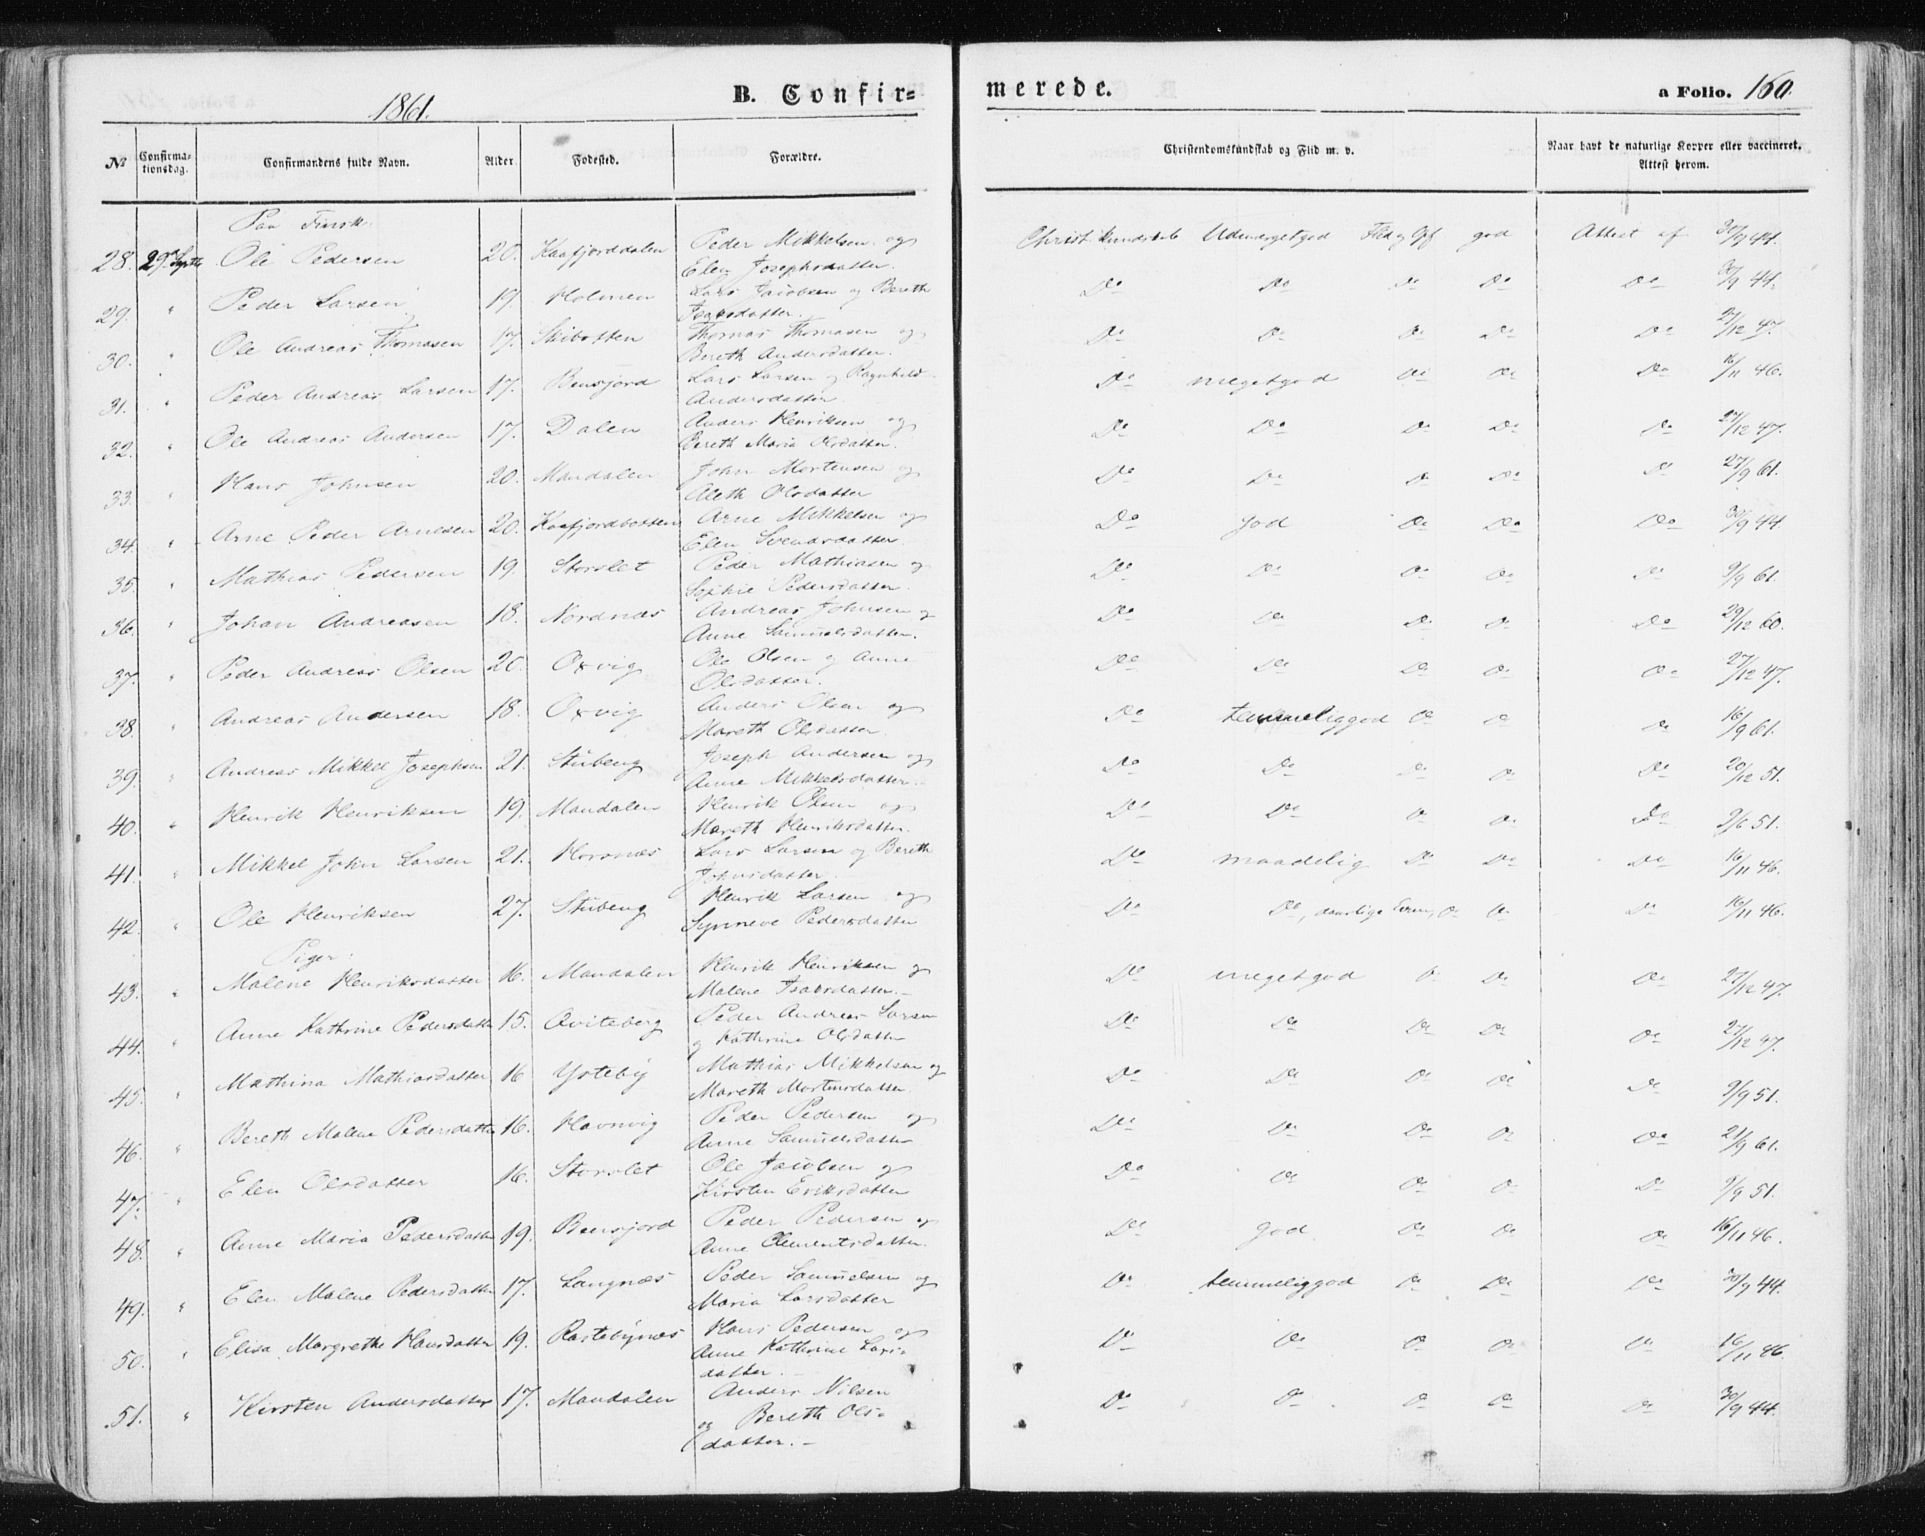 1861.
B. Confir=
merede.
a Folio. 160.
No
Confirma-
tionsdag.
Confirmandens fulde Navn.
Alder.
Fødested.
Forældre.
Christendomskundskab og Flid m. v.
Naar havt de naturlige Kopper eller vaccineret.
Attest herom.
Paa Finsk.
28. 29 Septb Ole Pedersen 20. Kaafjorddalen Peder Mikkelsen og Christ. kundskab Udmærketgod Flid og god Attest af 30/9 44.
Elen Josephsdatter.
29. " Peder Larsen 19. Holmen Lars Jacobsen og Bereth Do Do Do Do Do 30/9 44.
Isaksdatter.
30. " Ole Andreas Thomasen 17. Skibotten Thomas Thomasen og Do Do Do Do Do 27/12 47.
Bereth Andersdatter.
31. " Peder Andreas Larsen 17. Bensjord Lars Larsen og Ragnhild Do megetgod Do Do Do 16/11 46.
Andersdatter
32. " Ole Andreas Andersen 17. Dalen Anders Henriksen og Do Do Do Do Do 27/12 47.
Bereth Maria Olsdatter.
33. " Hans Johnsen 20. Mandalen John Mortensen og Do Do Do Do Do 27/9 61.
Aleth Olsdatter
34. " Arne Peder Arnesen 20. Kaafjordbotten Arne Mikkelsen og Do god Do Do Do 30/9 44
Elen Svendsdatter
35. " Mathias Pedersen 19. Storslet Peder Mathiasen og Do Do Do Do Do 9/9 61.
Sophie Pedersdatter.
36. " Johan Andreasen 18. Nordnæs Andreas Johnsen og Do Do Do Do Do 29/12 60.
Anne Samuelsdatter.
37. " Peder Andreas Olsen 20. Oxvig Ole Olsen og Anne Do Do Do Do Do 27/12 47.
Olsdatter.
38. " Andreas Andersen 18. Oxvig Anders Olsen og Do temmeliggod Do Do Do 16/9 61.
Mareth Olsdatter.
39. " Andreas Mikkel Josephsen 21. Stubeng Joseph Andersen og Do Do Do Do Do 20/12 51.
Anne Mikkelsdatter.
40. " Henrik Henriksen 19. Mandalen Henrik Olsen og Do Do Do Do Do 2/6 51.
Mareth Henriksdatter.
41. " Mikkel John Larsen 21. Horsnæs Lars Larsen og Bereth Do maadelig Do Do Do 16/11 46.
Johnsdatter
42. " Ole Henriksen 27. Stubeng Henrik Larsen og Do Do, daarlige Do Do Do 16/11 46.
Synneve Pedersdatter
Piger.
43. " Malene Henriksdatter 16. Mandalen Henrik Henriksen og Do megetgod Do Do Do 27/12 47.
Malene Isaksdatter.
44. " Anne Kathrine Pedersdatter 15. Qviteberg Peder Andreas Larsen Do Do Do Do Do 27/12 47.
og Kathrine Olsdatter
45. " Mathina Mathiasdatter 16 Ysteby Mathias Mikkelsen og Do Do Do Do Do 9/9 51.
Mareth Mortensdatter.
46. " Bereth Malene Pedersdatter 16. Havnvig Peder Pedersen og Do Do Do Do Do 21/9 61.
Anne Samuelsdatter
47. " Elen Olsdatter 16. Storslet Ole Jacobsen og Do Do Do Do Do 9/9 51.
Kirsten Eriksdatter
48. " Anne Maria Pedersdatter 19. Bensjord Peder Pedersen og Do god Do Do Do 16/11 46.
Anne Clementsdatter.
49. " Elen Malene Pedersdatter 17. Langnæs Peder Samuelsen og Do temmeliggod Do Do Do 30/9 44.
Maria Larsdatter
50. " Elisa Margrethe Hansdatter 19. Rastebynæs Hans Pedersen og Do Do Do Do Do 16/11 46.
Anne Kathrine Lars-
datter.
51. " Kirsten Andersdatter 17. Mandalen Anders Nilsen Do Do Do Do Do 30/9 44.
og Bereth Ols-
datter.